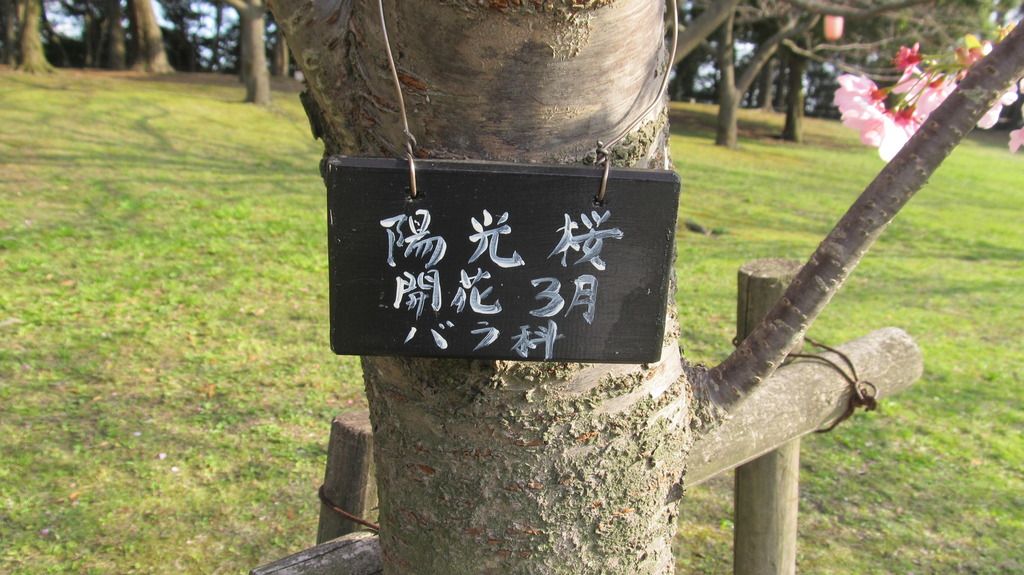 陽光桜
開花 3月
バラ科